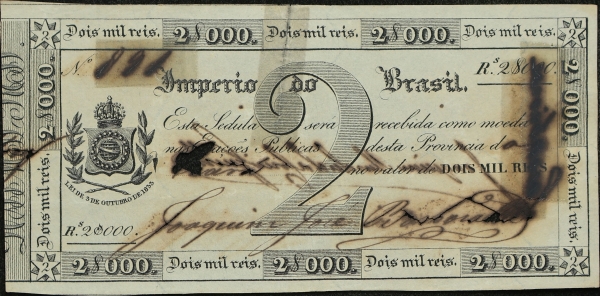 Dois mil reis. 2$000. Dois mil reis. 2$000. Dois mil reis.
Nº 892
Imperio do Brasil.
Rs 2$000.
Esta Sedula será recebida como moeda
nas Estações Publicas desta Provincia d
no valor de DOIS MIL REIS
LEI DE 3 DE OUTUBRO DE 1833
Rs 2$000.
Joaquim José
2$000. Dois mil reis. 2$000. Dois mil reis. 2$000.
Dois mil reis. 2$000.
2$000. Dois mil reis.
2